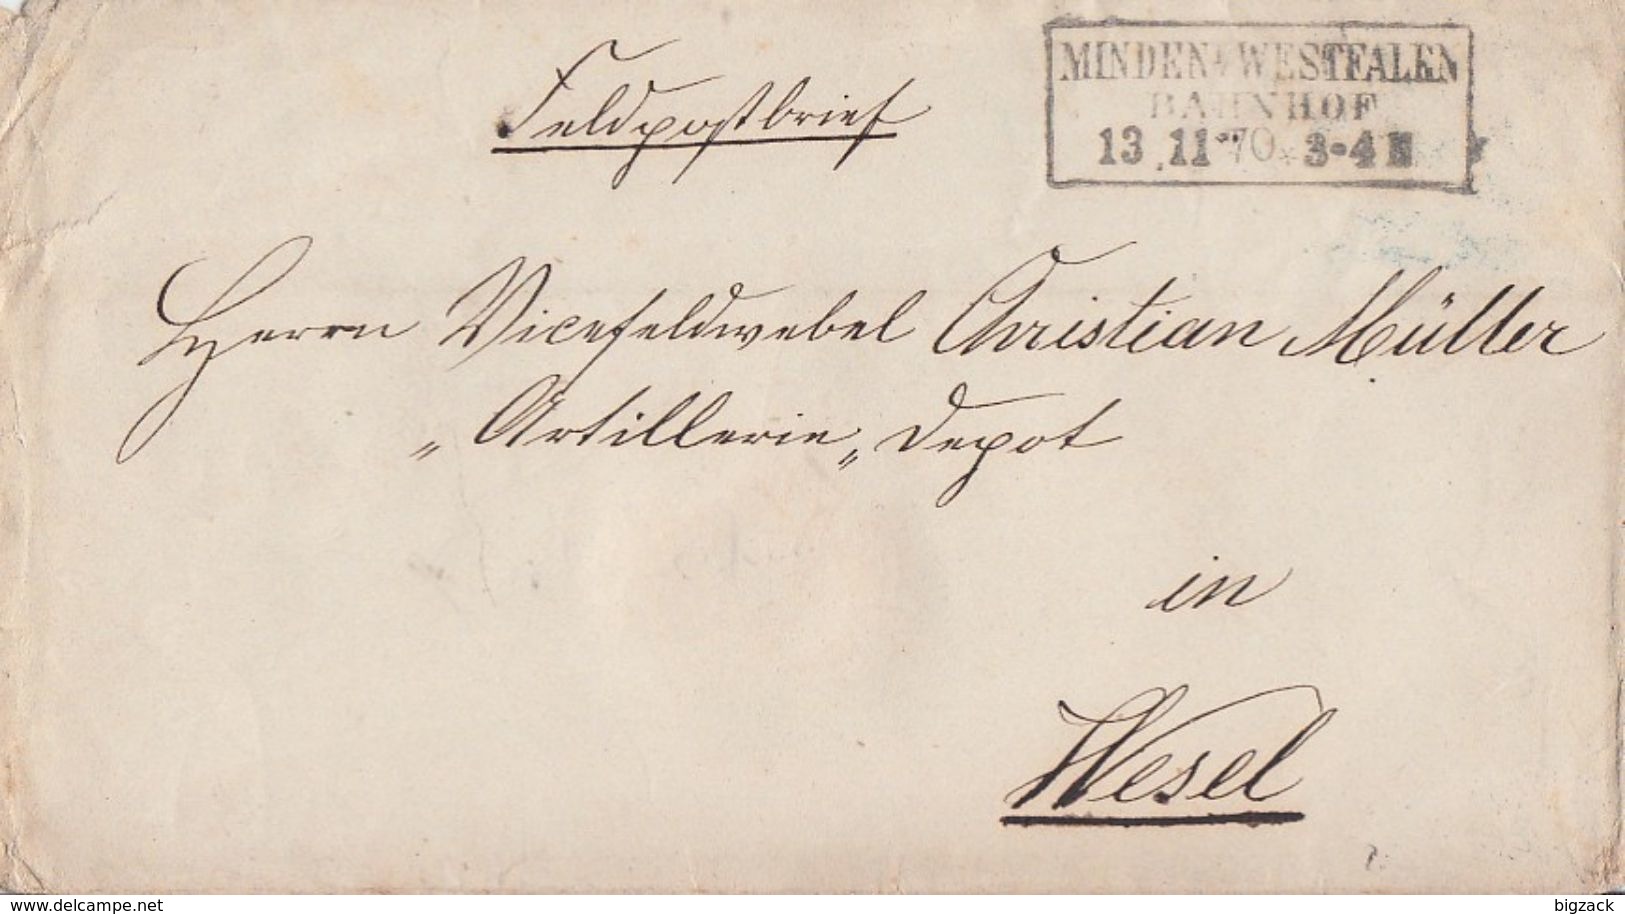 Feldpostbrief
MINDEN WESTFALEN
BAHNHOF
13 11 70 3-4 N
Herrn Vicefeldwebel Christian Müller
„Artillerie„ Depot
in
Wesel
www.delcampe.net
bigzack